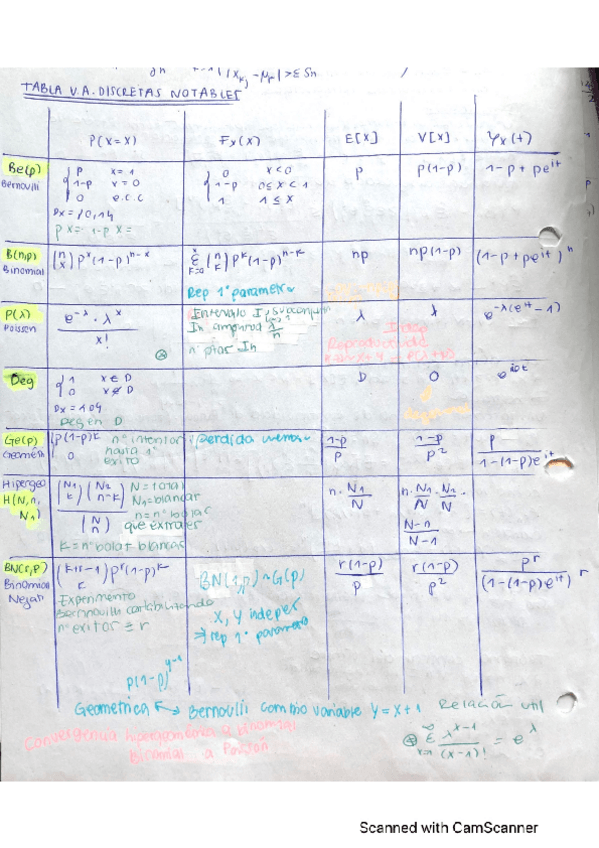 |X_K, - μ_r| > ε Sn
TABLA V.A. DISCRETAS NOTABLES
P(X=X) F_X(X) E[X] V[X] φ_X(t)
Be(p)
Bernoulli
P X=1
1-p X=0
0 e.c.c
0 X<0
1-p 0≤X<1
1 1≤X
P
P(1-p)
1-p+pe^{it}
Dx={0,1}
px= 1-p x=
B(n,p)
Binomial
(n x) p^x (1-p)^{n-x}
Σ_{K=0}^{x} (n K) p^K (1-p)^{n-K}
np
np(1-p)
(1-p+pe^{it})^n
Rep 1º parametro
P(λ)
Poisson
e^{-λ}·λ^x / x!
Intervalo I, subconjun
In amplitud λ/n
nº pior In
λ
λ
e^{-λ(e^{it}-1)}
Indep
Reproductividad
Deg
1 X∈D
0 X∉D
Dx={D}
Deg en D
D
0
e^{itD}
Ge(p)
Geométri
p(1-p)^k
0
nº intentos
hasta 1º
exito
perdida memoria
1-p / p
1-p / p²
p / 1-(1-p)e^{it}
Hipergeo
H(N,n,
N₁)
(N₁ k) (N₂ n-k) / (N n)
N=total
N₁=blancas
n=nº bolas
que extraes
K=nº bolas blancas
n·N₁/N
n·N₁/N·N₂/N·
N-n / N-1
BN(r,p)
Binomial
Negati
(k+r-1 k) p^r (1-p)^k
Experimento
Bernoulli contabilizando
nº exitos = r
BN(1,p) ~ G(p)
X, Y indepes
⇒ rep 1º parametro
r(1-p) / p
r(1-p) / p²
p^r / (1-(1-p)e^{it})^r
p(1-p)^{y-1}
Geometrica ↔ Bernoulli cambio variable Y=X+1
Relación util
Convergencia hipergeométrica a binomial
binomial a Poisson
⊛ Σ_{x=1}^{∞} λ^{x-1} / (x-1)! = e^λ
Scanned with CamScanner